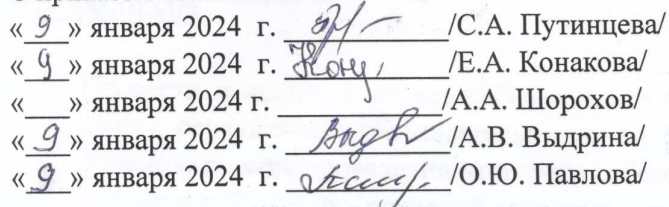 « 9 » января 2024 г. ________/С.А. Путинцева/
« 9 » января 2024 г. ________/Е.А. Конакова/
«___» января 2024 г. ________/А.А. Шорохов/
« 9 » января 2024 г. ________/А.В. Выдрина/
« 9 » января 2024 г. ________/О.Ю. Павлова/